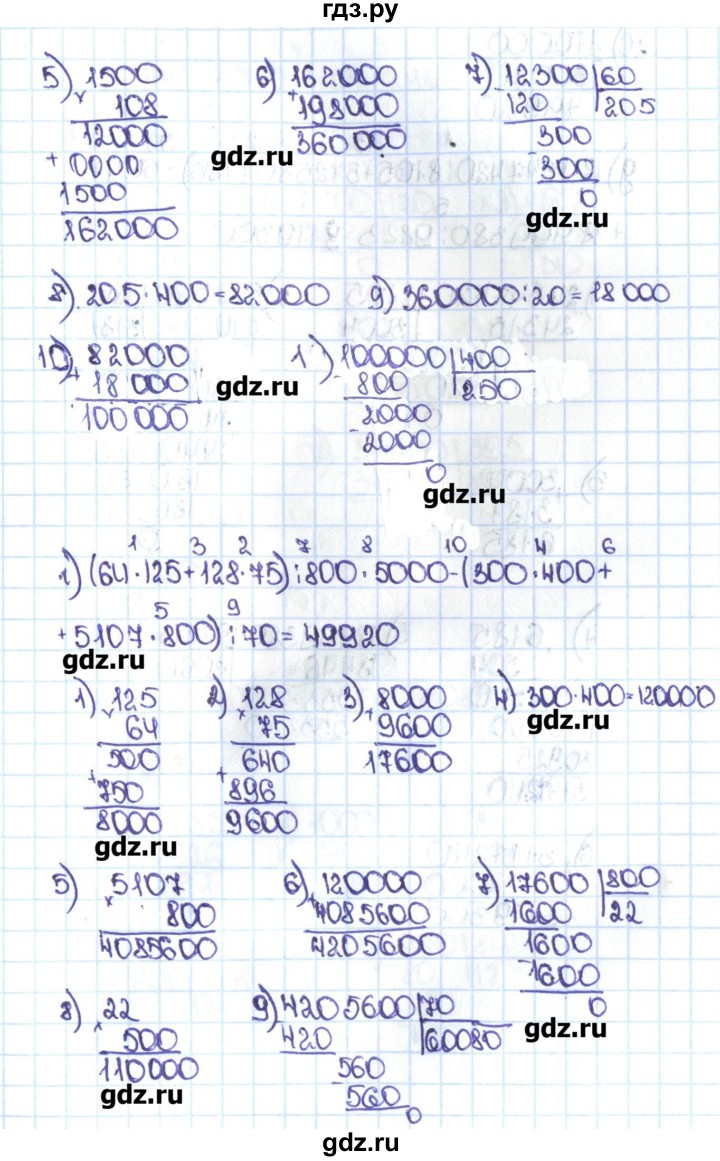 гдз.ру
5) 1500 6) 162000 7) 12300 60
× 108 + 198000 - 120 205
12000 360000 300
+ 0000 - 300
1500 0
162000
gdz.ru
gdz.ru
8) 205·400=82000 9) 360000:20=18000
10) 82000 1) 100000 400
+ 18 000 - 800 250
100 000 2000
- 2000
0
gdz.ru
gdz.ru
1 3 2 7 8 10 4 6
1) (64·125+128·75):800·5000-(300·400+
5 9
+5107·800):70=49920
gdz.ru
1) 125 2) 128 3) 8000 4) 300·400=120000
× 64 × 75 + 9600
500 640 17600
+ 750 + 896
8000 9600
gdz.ru
gdz.ru
5) 5107 6) 120000 7) 17600 800
× 800 + 4085600 1600 22
4085600 4205600 1600
- 1600
0
8) 22 9) 4205600 70
× 500 420 60080
110000 560
560
0
gdz.ru
gdz.ru
gdz.ru